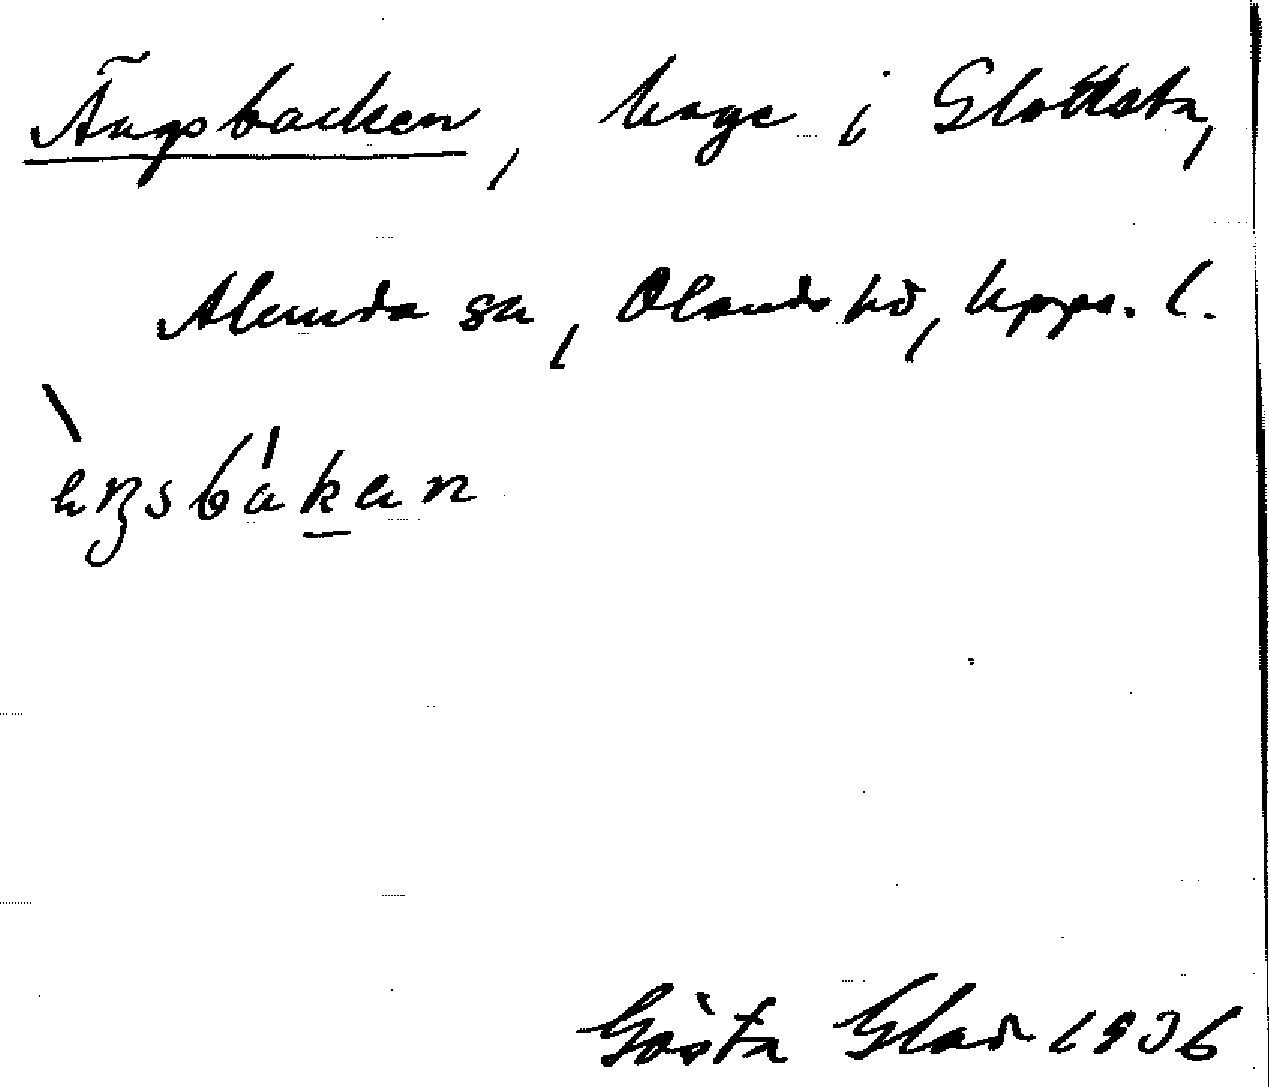 Ängsbacken, hage i Glottsta,
Alunda sn, Olands hd, Upps. l.
Gösta Glad 1936